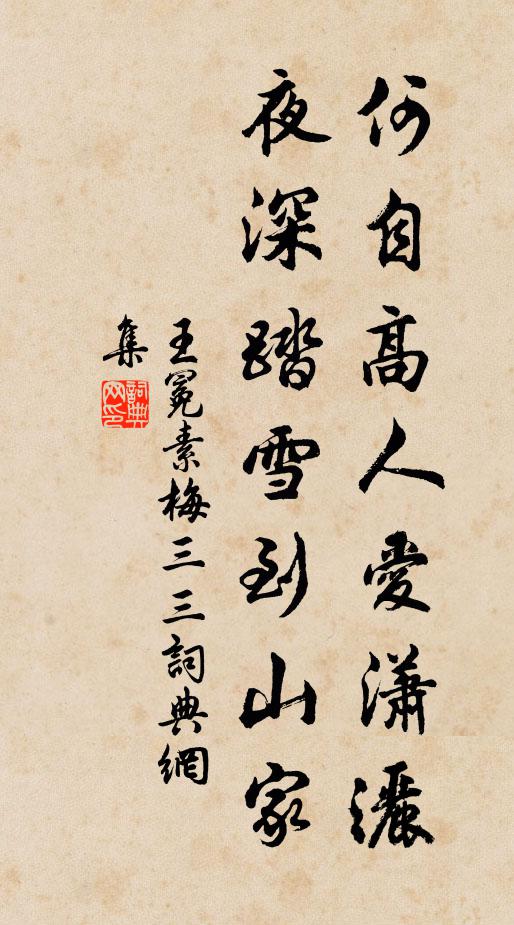 何自高人愛瀟灑
夜深踏雪到山家
王冕素梅三三詞典網
集
詞典
网印